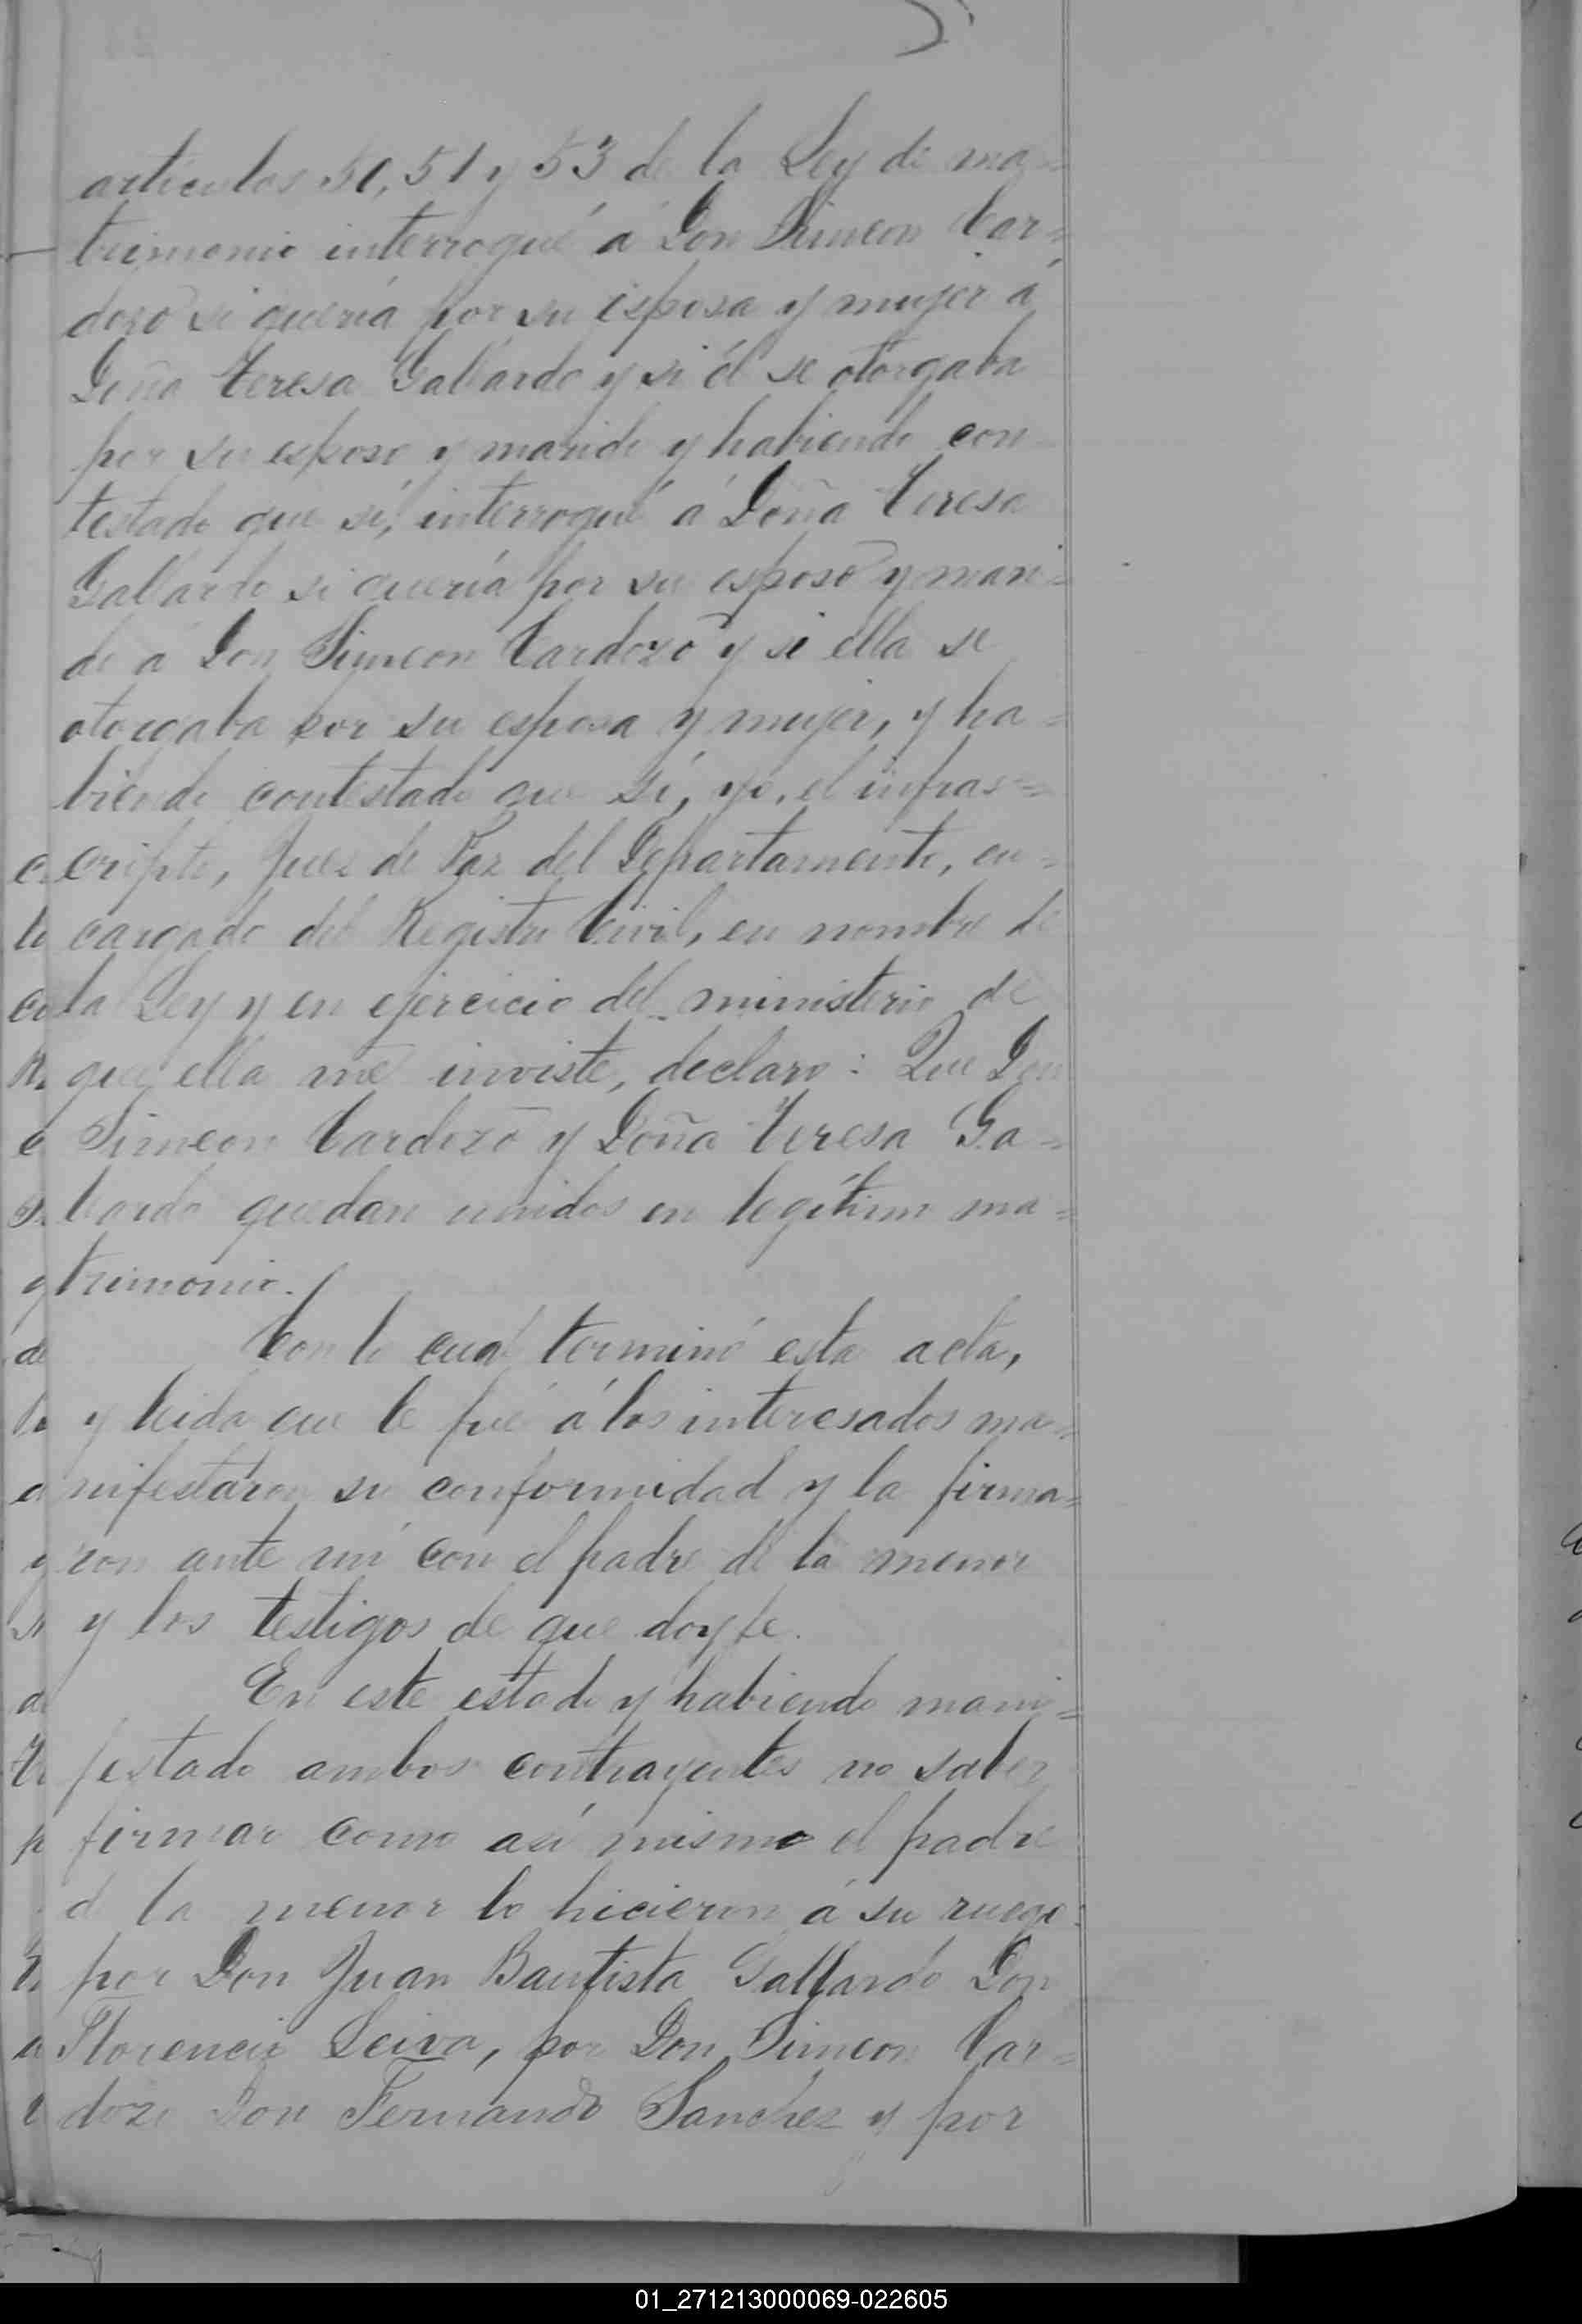 artículos 50, 51 y 53 de la Ley de ma=
trimonio interrogué á Don Simeon Car=
dozo si quería por su esposa y mujer á
Doña Teresa Gallardo y si él se otorgaba
por su esposo y marido y habiendo con
testado que sí, interrogué á Doña Teresa
Gallardo si quería por su esposo y mari=
do á Don Simeon Cardozo y si ella se
otorgaba por su esposa y mujer, y ha=
biendo contestado que sí, yo, el infras=
cripto, Juez de Paz del Departamento, en=
cargado del Registro Civil, en nombre de
la Ley y en ejercicio del ministerio de
que ella me inviste, declaro: Que Don
Simeon Cardozo y Doña Teresa Ga=
llardo quedan unidos en legítimo ma=
trimonio.
Con lo cual terminó esta acta,
y leida que le fué á los interesados ma=
nifestaron su conformidad y la firma=
ron ante mí con el padre de la menor
y los testigos de que doy fe.
En este estado y habiendo mani=
festado ambos contrayentes no saber
firmar como así mismo el padre
de la menor lo hicieron á su ruego:
por Don Juan Bautista Gallardo Don
Florencio Leiva, por Don Simeon Car=
dozo Don Fernando Sanchez y por
01_271213000069-022605